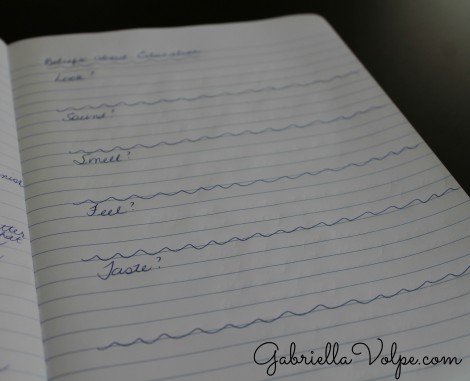 Beliefs about Education
Look?
Sound?
Smell?
Feel?
Taste?
GabriellaVolpe.com